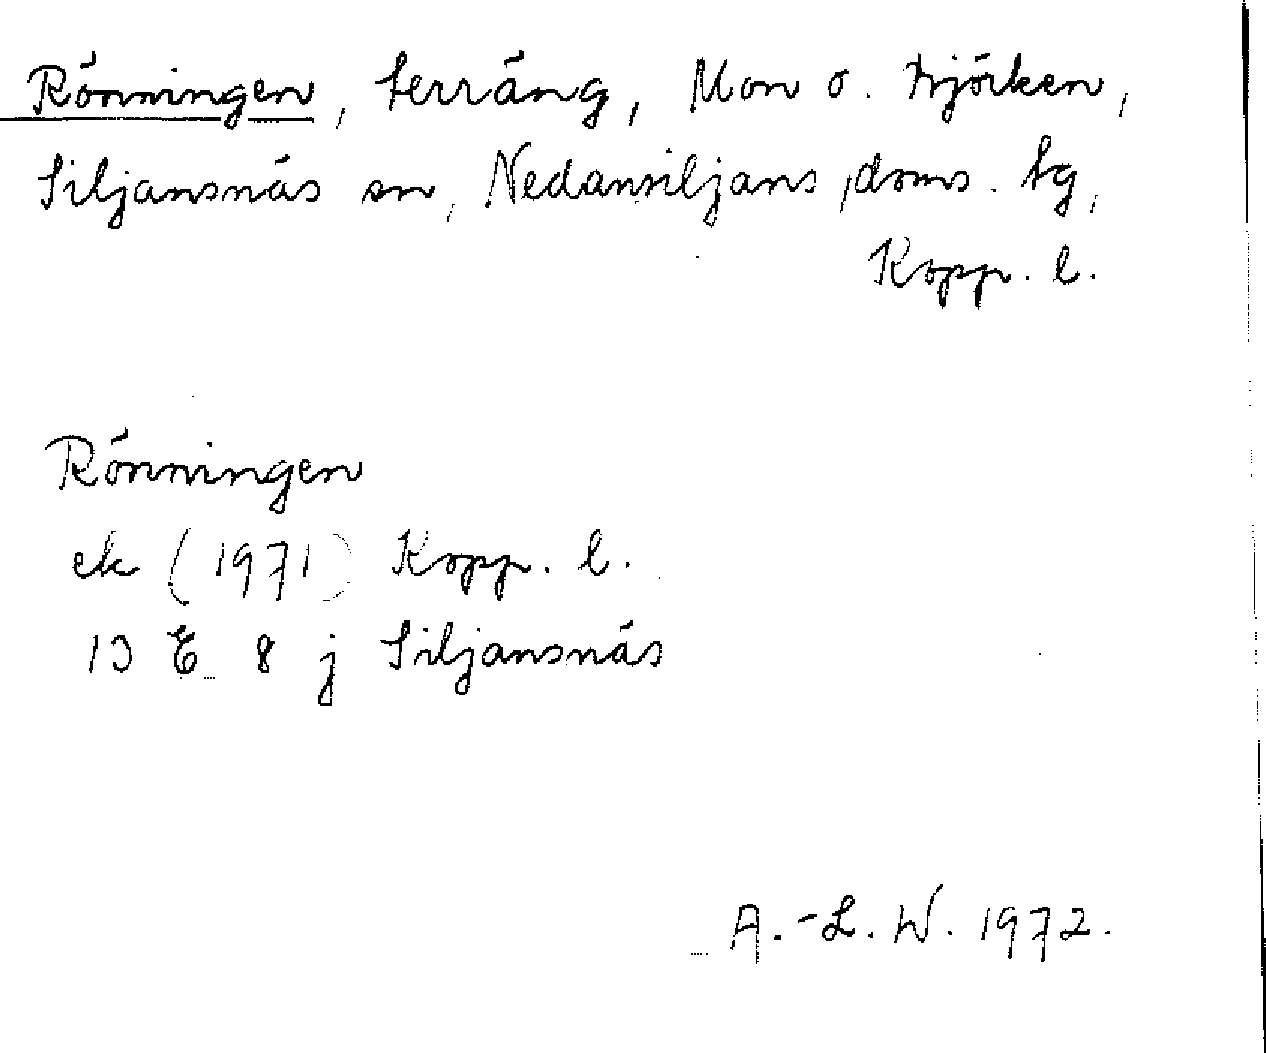 Rönningen, terräng, Mon o. Björken,
Siljansnäs sn, Nedansiljans doms. tg,
Kopp. l.
Rönningen
ek (1971) Kopp. l.
13 E 8 j Siljansnäs
A.-L. W. 1972.